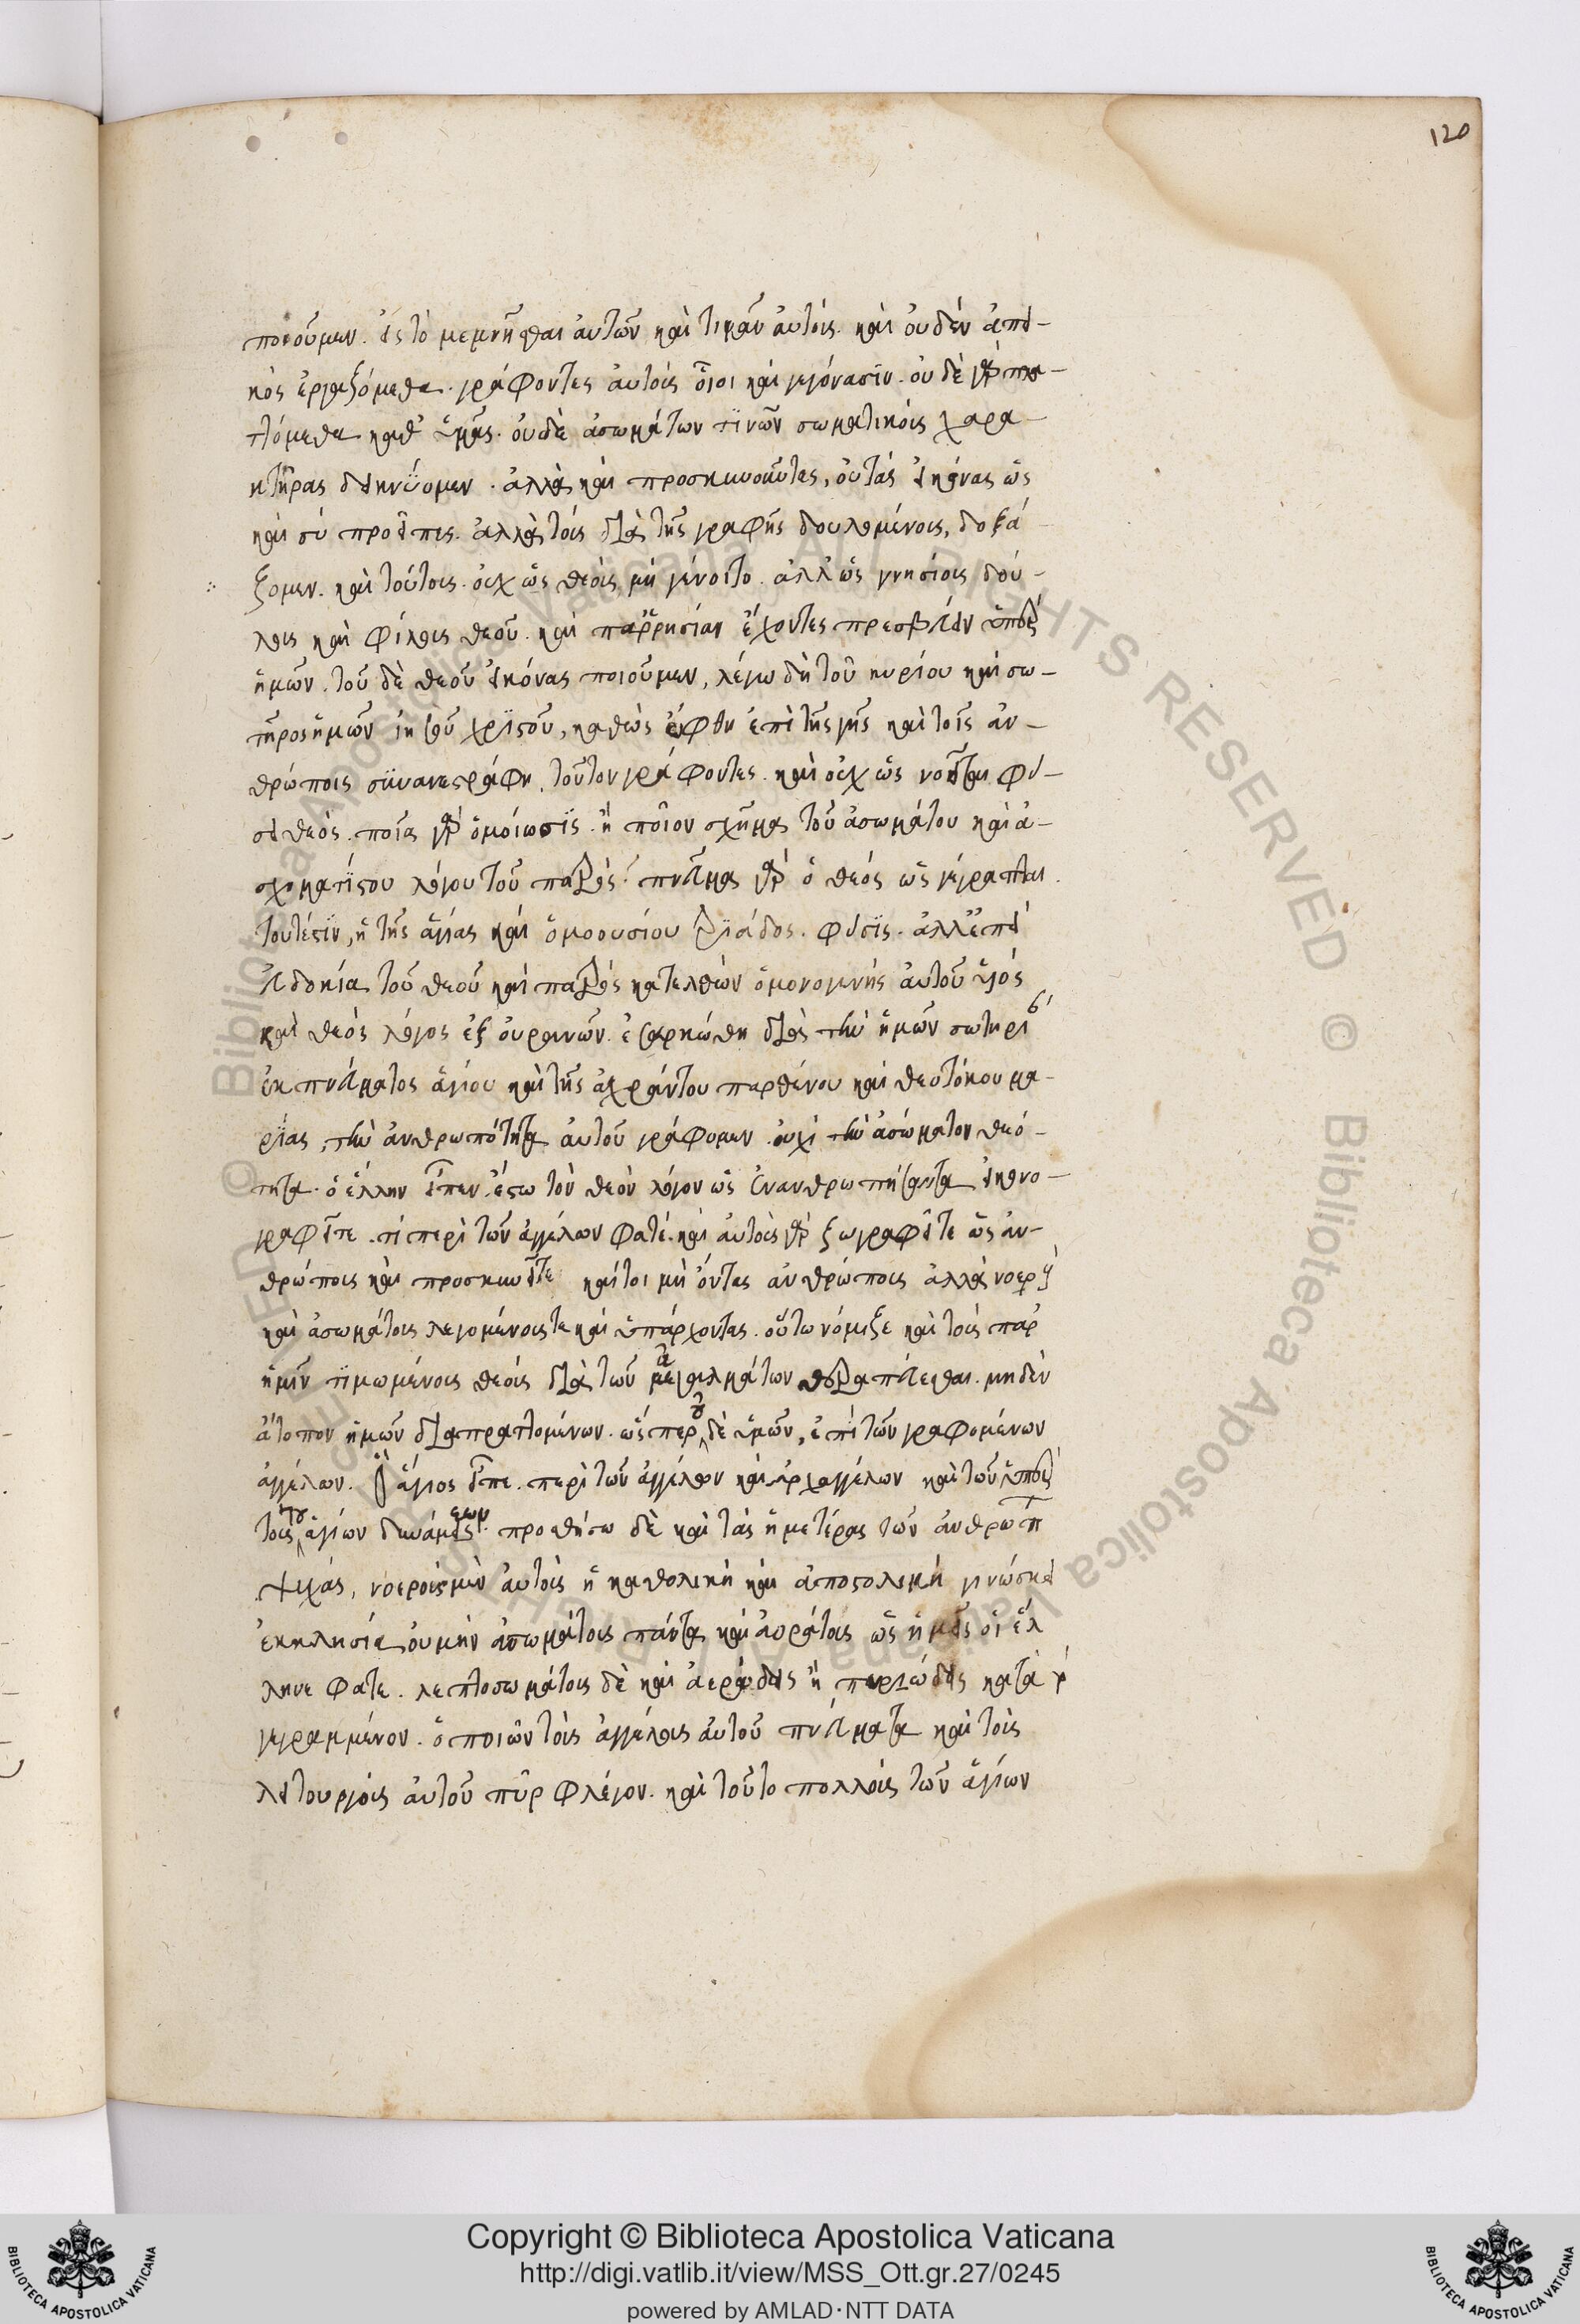 120
ποιοῦμεν. εἰς τὸ μεμνῆσθαι αὐτῶν καὶ τιμᾶν αὐτούς. καὶ οὐδὲν ἀπει-
κὸς ἐργαζόμεθα. γράφοντες αὐτοὺς οἷοι καὶ γεγόνασϊν. οὐδὲ γὰρ πλα-
τόμεθα καθ' ὑμᾶς. οὐδὲ ἀσωμάτων τϊνῶν σωματικοὺς χαρα-
κτῆρας δεικνϋομεν. ἀλλὰ καὶ προσκυνοῦντες, οὐ τὰς εἰκόνας ὡς
καὶ σὺ προεῖπες. ἀλλὰ τοὺς διὰ τῆς γραφῆς δουλομένους, δοξά-
ζομεν. καὶ τούτους. οὐχ ὡς θεοὺς μὴ γένοιτο. ἀλλ' ὡς γνησίους δού-
λους καὶ φίλους θεοῦ. καὶ παῤῥησίαν ἔχοντες πρεσβεύειν ὑπὲρ
ἡμῶν. τοῦ δὲ θεοῦ εἰκόνας ποιοῦμεν, λέγω δὴ τοῦ κυρίου καὶ σω-
τῆρος ἡμῶν ἰησοῦ χρϊστοῦ, καθὼς ὤφθη ἐπὶ τῆς γῆς καὶ τοῖς ἀν-
θρώποις συνανεστράφη, τοῦτον γράφοντες. καὶ οὐχ ὡς νοεῖται φύ-
σει θεός. ποία γὰρ ὁμοίωσϊς. ἢ ποῖον σχῆμα τοῦ ἀσωμάτου καὶ ἀ-
σχηματϊστου λόγου τοῦ πατρός. πνεῦμα γὰρ ὁ θεός ὡς γέγραπται.
τουτέστϊν, ἡ τῆς ἁγίας καὶ ὁμοουσίου τρϊάδος. φύσϊς. ἀλλ' ἐπεὶ
εὐδοκία τοῦ θεοῦ καὶ πατρὸς κατελθὼν ὁ μονογενὴς αὐτοῦ υἱὸς
καὶ θεὸς λόγος ἐξ οὐρανῶν. ἐσαρκώθη διὰ τὴν ἡμῶν σωτηρί
ἐκ πνεύματος ἁγίου καὶ τῆς ἀχράντου παρθένου καὶ θεοτόκου μα-
ρϊας, τὴν ἀνθρωπότητα αὐτοῦ γράφομεν. οὐχὶ τὴν ἀσώματον θεό-
τητα. ὁ ἕλλην εἶπεν. ἔστω τὸν θεὸν λόγον ὡς ἐνανθρωπήσαντα εἰκονο-
γραφεῖτε. τί περὶ τῶν ἀγγέλων φατέ. καὶ αὐτοὺς γὰρ ζωγραφεῖτε ὡς ἀν-
θρώποις καὶ προσκυνεῖτε καίτοι μὴ ὄντας ἀνθρώποις ἀλλὰ νοεροὺς
καὶ ἀσωμάτους λεγομένους τε καὶ ὑπάρχοντας. οὕτω νόμιζε καὶ τοὺς παρ'
ἡμῖν τϊμωμένους θεοὺς διὰ τῶν ἀγαλμάτων θεραπεύεσθαι. μηδὲν
ἄτοπον ἡμῶν διαπραττομένων. ὥσπερ οὐδὲ ὑμῶν, ἐπὶ τῶν γραφομένων
ἀγγέλων. ὁ ἅγιος εἶπε. περὶ τῶν ἀγγέλων καὶ ἀρχαγγέλων καὶ τῶν ὑπὲρ
τούτους ἁγίων δυνάμεων. προσθήσω δὲ καὶ τὰς ἡμετέρας τῶν ἀνθρώπ
ψυχάς, νοεροὺς μὲν αὐτοὺς ἡ καθολικὴ καὶ ἀποστολικὴ γινώσκει
ἐκκλησία οὐ μὴν ἀσωμάτους πάντα καὶ ἀοράτους ὡς ὑμεῖς οἱ ἕλ
ληνε φατε. λεπτοσωμάτους δὲ καὶ ἀερώδεις ἢ πυρώδεις κατὰ τὸ
γεγραμμένον. ὁ ποιῶν τοὺς ἀγγέλους αὐτοῦ πνεύματα καὶ τοὺς
λειτουργοὺς αὐτοῦ πῦρ φλέγον. καὶ τοῦτο πολλοὺς τῶν ἁγίων
Copyright © Biblioteca Apostolica Vaticana
http://digi.vatlib.it/view/MSS_Ott.gr.27/0245
powered by AMLAD·NTT DATA